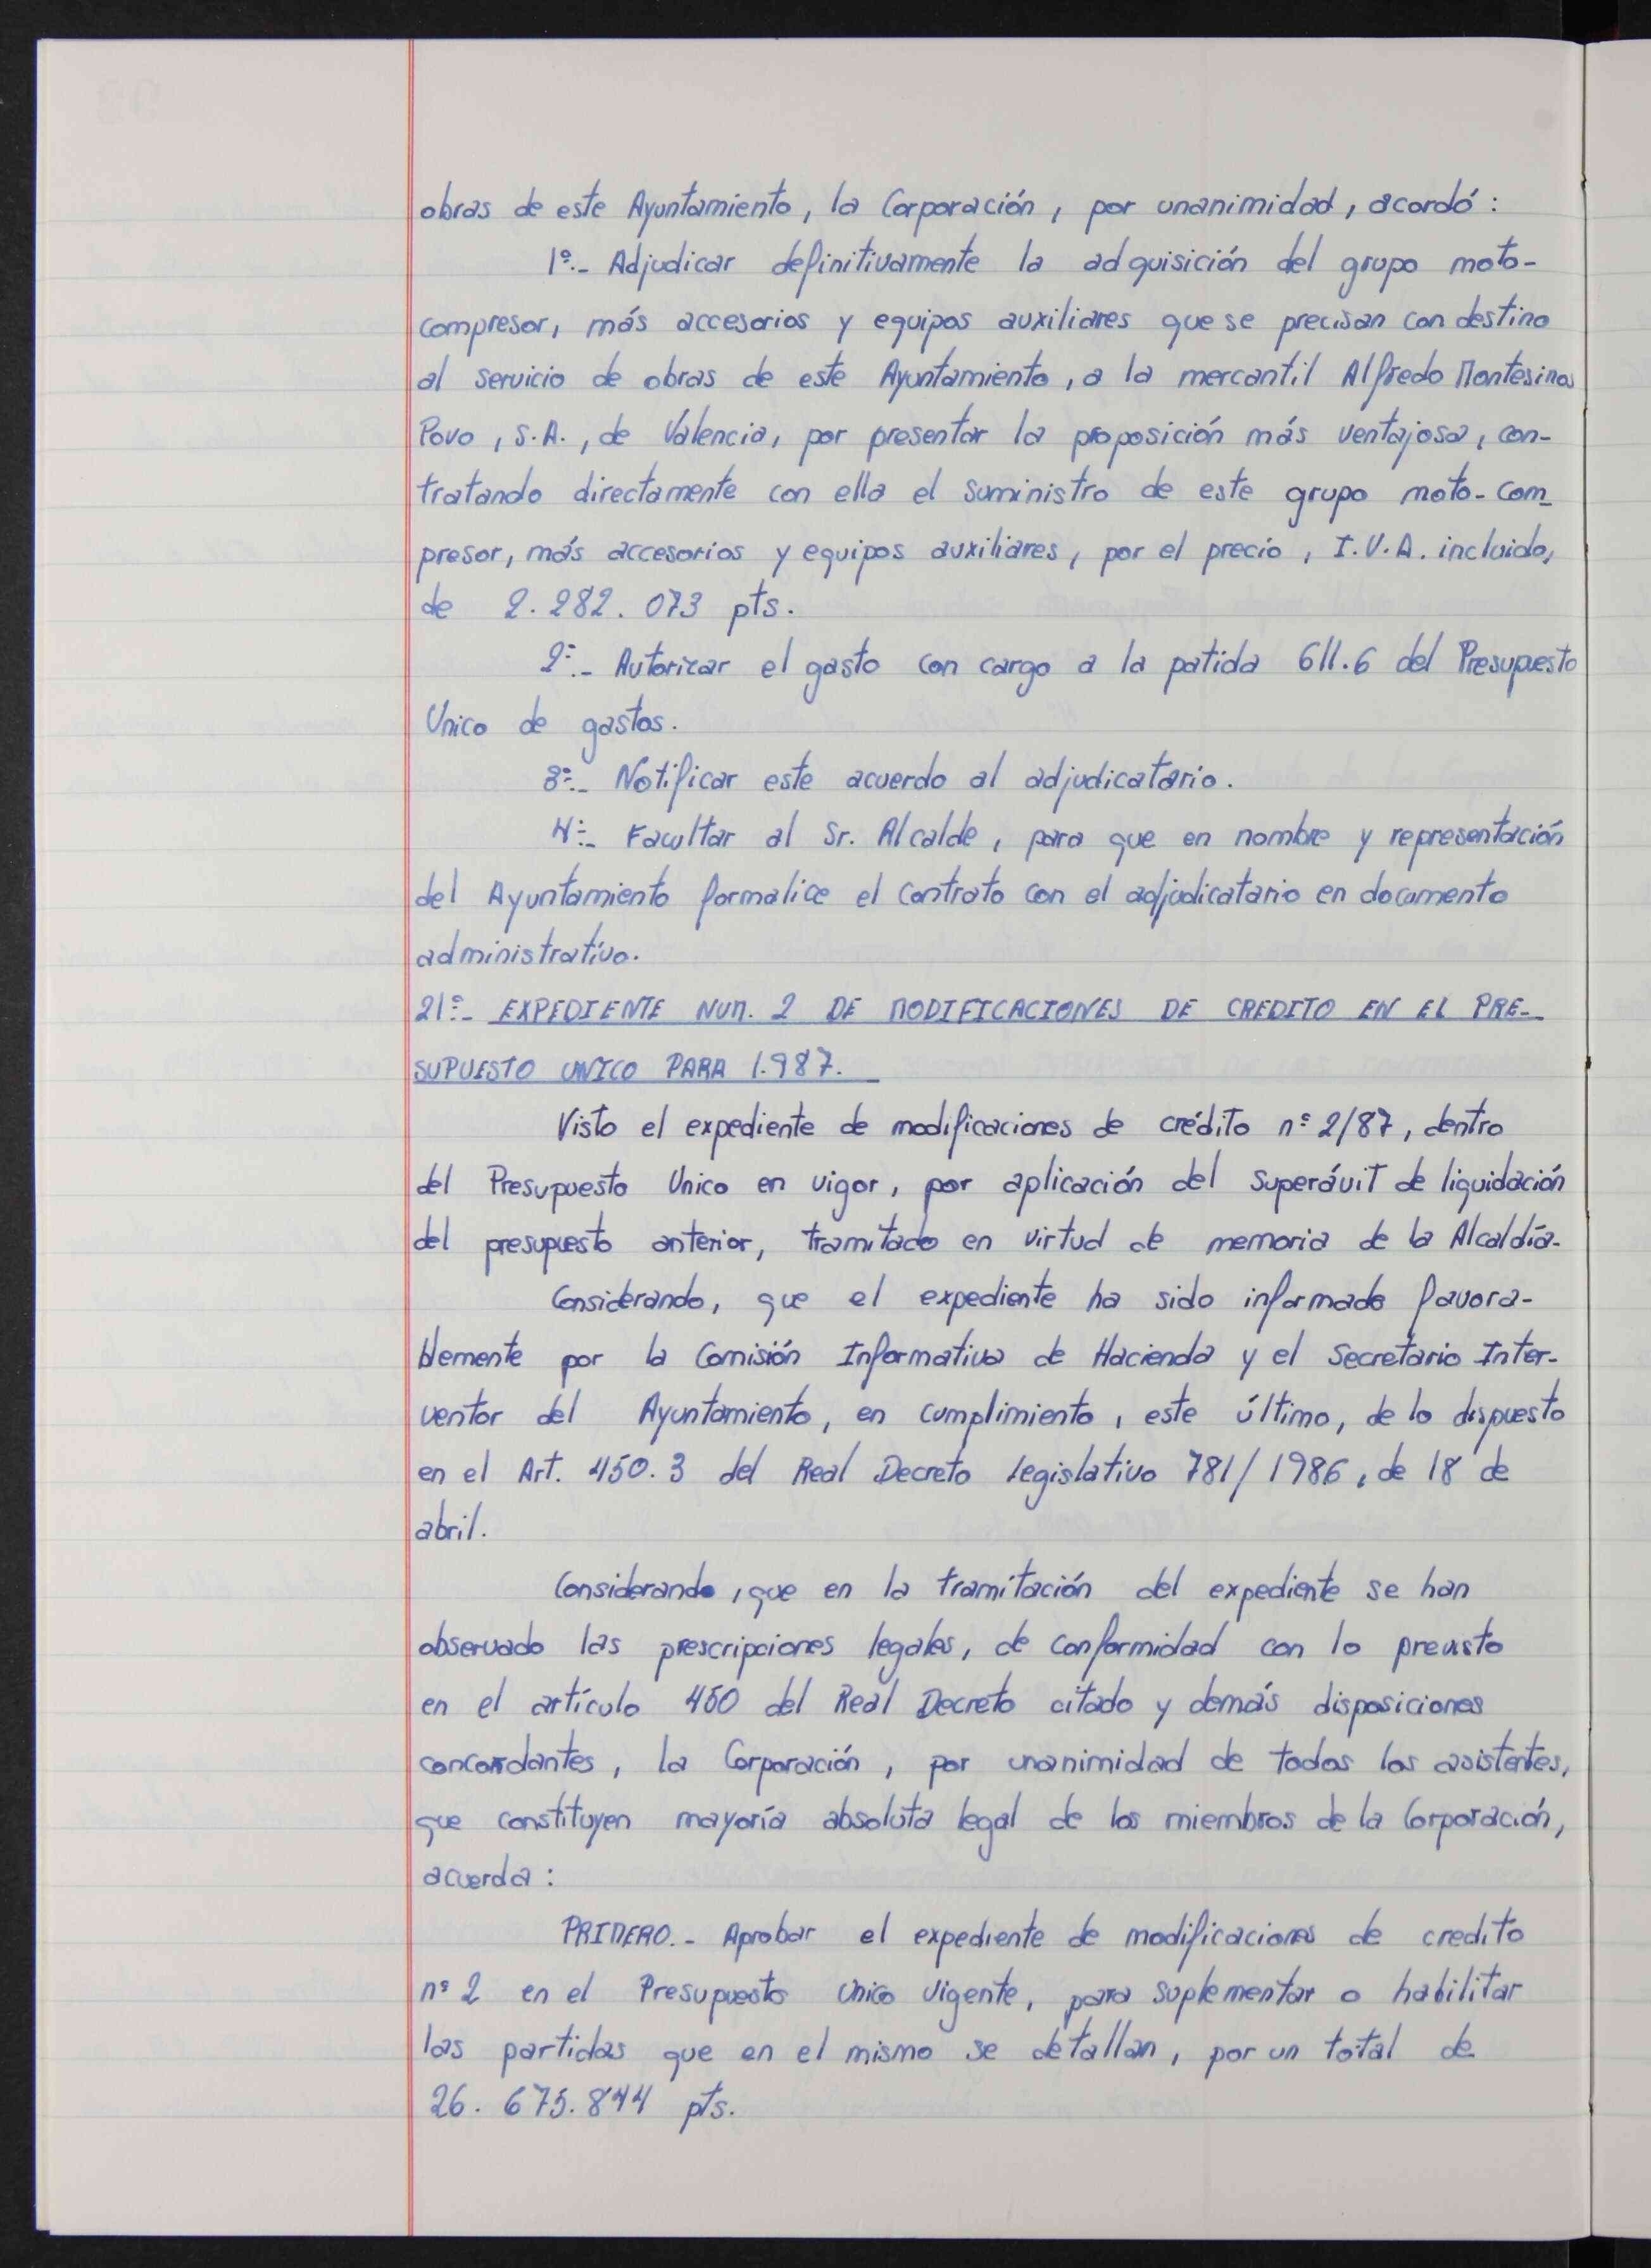 obras de este Ayuntamiento, la Corporación, por unanimidad, acordó:
1º.- Adjudicar definitivamente la adquisición del grupo moto-
compresor, más accesorios y equipos auxiliares que se precisan con destino
al servicio de obras de este Ayuntamiento, a la mercantil Alfredo Montesinos
Povo, S.A., de Valencia, por presentar la proposición más ventajosa, con-
tratando directamente con ella el suministro de este grupo moto-com-
presor, más accesorios y equipos auxiliares, por el precio, I.V.A. incluido,
de 2.282.073 pts.
2º.- Autorizar el gasto con cargo a la patida 611.6 del Presupuesto
Unico de gastos.
3º.- Notificar este acuerdo al adjudicatario.
4º.- Facultar al Sr. Alcalde, para que en nombre y representación
del Ayuntamiento formalice el contrato con el adjudicatario en documento
administrativo.
21º.- EXPEDIENTE NUM. 2 DE MODIFICACIONES DE CREDITO EN EL PRE-
SUPUESTO UNICO PARA 1.987.
Visto el expediente de modificaciones de crédito nº 2/87, dentro
del Presupuesto Unico en vigor, por aplicación del superávit de liquidación
del presupuesto anterior, tramitado en virtud de memoria de la Alcaldía.
Considerando, que el expediente ha sido informado favora-
blemente por la Comisión Informativa de Hacienda y el Secretario Inter-
ventor del Ayuntamiento, en cumplimiento, este último, de lo dispuesto
en el Art. 450.3 del Real Decreto Legislativo 781/1986, de 18 de
abril.
Considerando, que en la tramitación del expediente se han
observado las prescripciones legales, de conformidad con lo previsto
en el artículo 450 del Real Decreto citado y demás disposiciones
concordantes, la Corporación, por unanimidad de todos los asistentes,
que constituyen mayoría absoluta legal de los miembros de la Corporación,
acuerda:
PRIMERO.- Aprobar el expediente de modificaciones de credito
nº 2 en el Presupuesto Unico vigente, para suplementar o habilitar
las partidas que en el mismo se detallan, por un total de
26.675.844 pts.